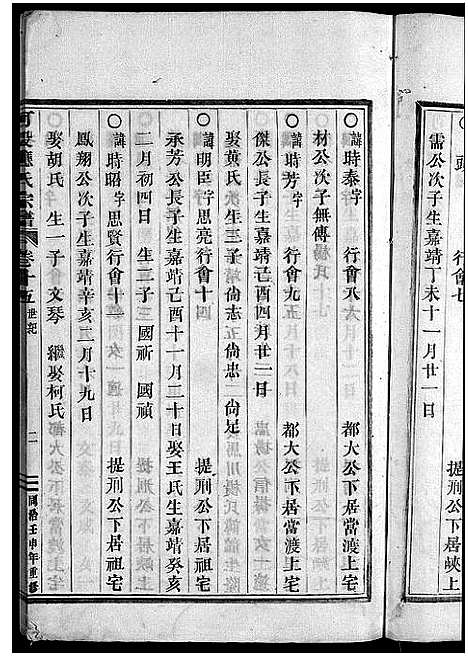 行會七　提刑公下居峽上
需公次子生嘉靖丁未十一月廿一日
○諱時泰字　行會八　都大公下居當渡上宅
材公次子無傳
○諱時芳字　行會九　都大公下居當渡上宅
傑公長子生嘉靖己酉四月廿二日
娶黃氏　生三子　尚志　尚忠　尚足
○諱明臣字思亮行會十四　提刑公下居祖宅
永芳公長子生嘉靖己酉十一月二十日娶王氏生嘉靖癸亥
二月初四日　生二子　國祈　國禎
○諱時昭字思賢行會十二　提刑公下居祖宅
鳳翔公次子生嘉靖辛亥二月十九日
娶胡氏　生一子　文琴　繼娶柯氏
氏宗譜　卷十五　世紀　二　同治壬申年重修